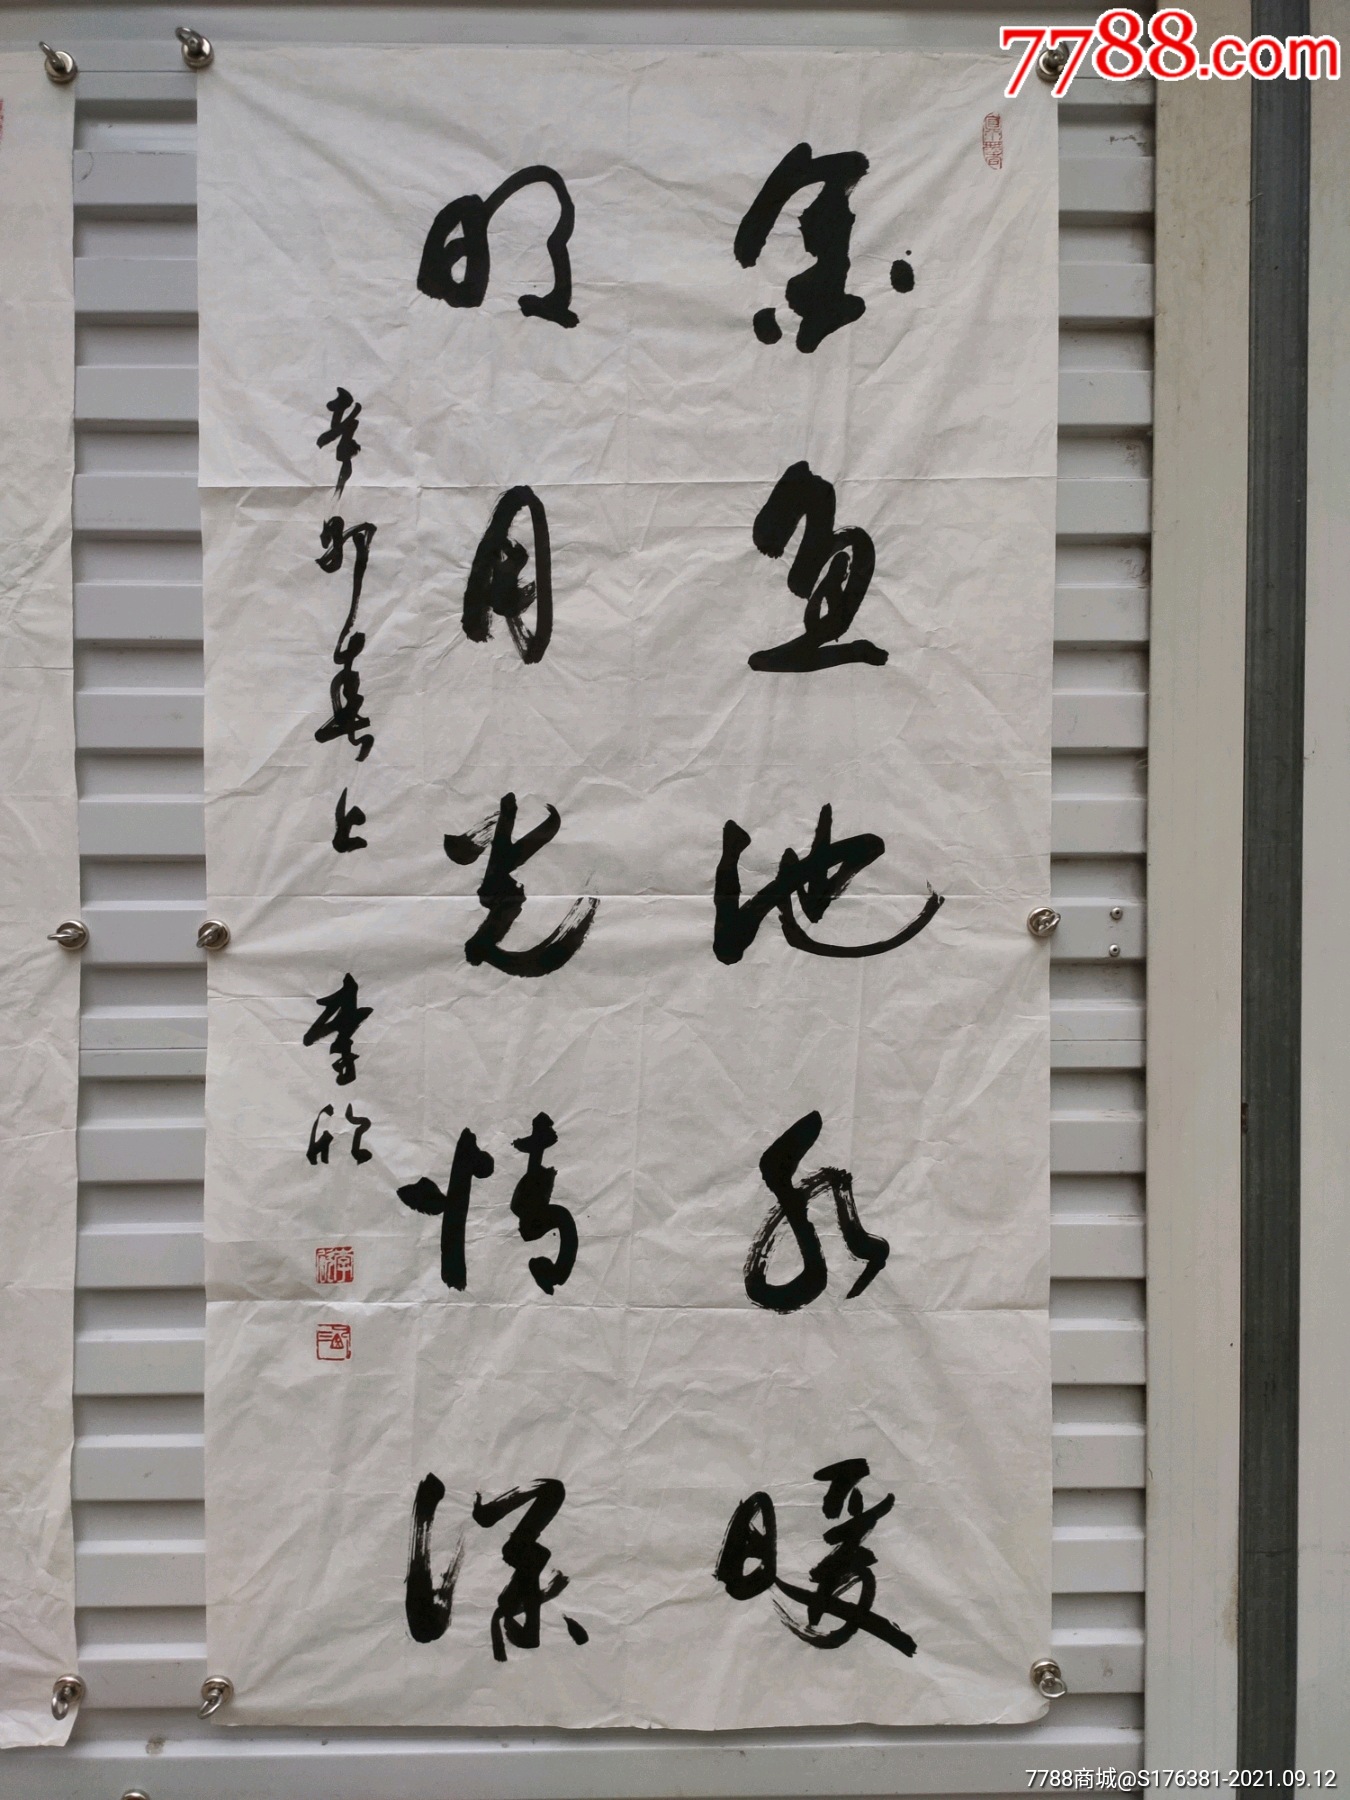 7788.com
金鱼池水暖
明月光情深
辛卯春上 李欣
7788商城@S176381-2021.09.12